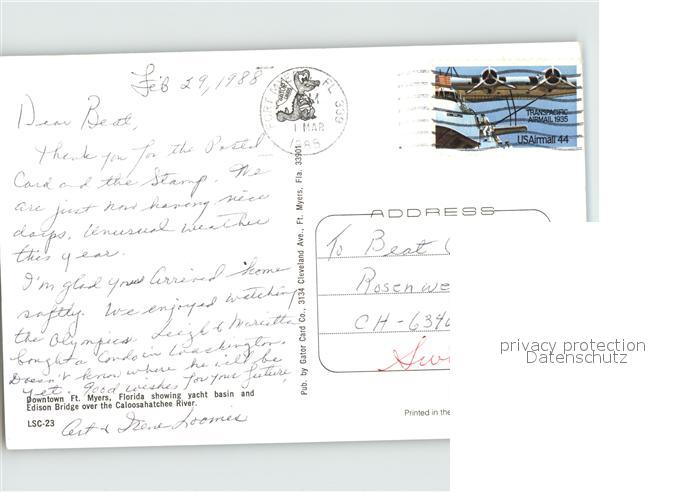 Feb 29, 1988
Dear Beat,
Thank you for the Postal
Card and the Stamp. We
are just now having nice
days. Unusual weather
this year.
I'm glad you arrived home
saftly. We enjoyed watching
the Olympics. Leigh & Marietta
bought a Condo in Washington.
Doesn't know where he will be
yet. Good wishes for your future,
Art & Irene Loomis
Downtown Ft. Myers, Florida showing yacht basin and
Edison Bridge over the Caloosahatchee River.
LSC-23
Pub. by Gator Card Co., 3134 Cleveland Ave., Ft. Myers, Fla. 33901
FORT MYERS FL 339
1 MAR
TRANSPACIFIC
AIRMAIL 1935
USAirmail 44
ADDRESS
To Beat
Rosenwe
CH-6340
Swi
Printed in the
privacy protection
Datenschutz